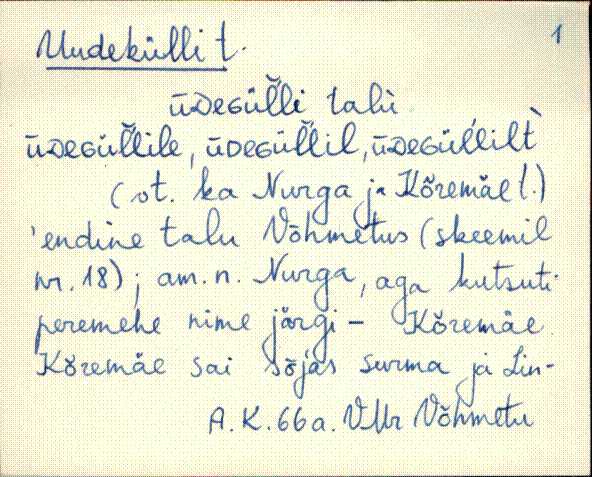 1
Uudekülli t.
ūᴅᴇɢül̆l̆i talù
ūᴅᴇɢül̆l̆ile, ūᴅᴇɢül̆l̆il, ūᴅᴇɢül̆l̆ilt
(vt. ka Nurga ja Kõremäe t.)
'endine talu Võhmetus (skeemil
nr. 18); am. n. Nurga, aga kutsuti
peremehe nime järgi – Kõremäe.
Kõremäe sai sõjas surma ja Lin-
A. K. 66 a. VMr Võhmetu